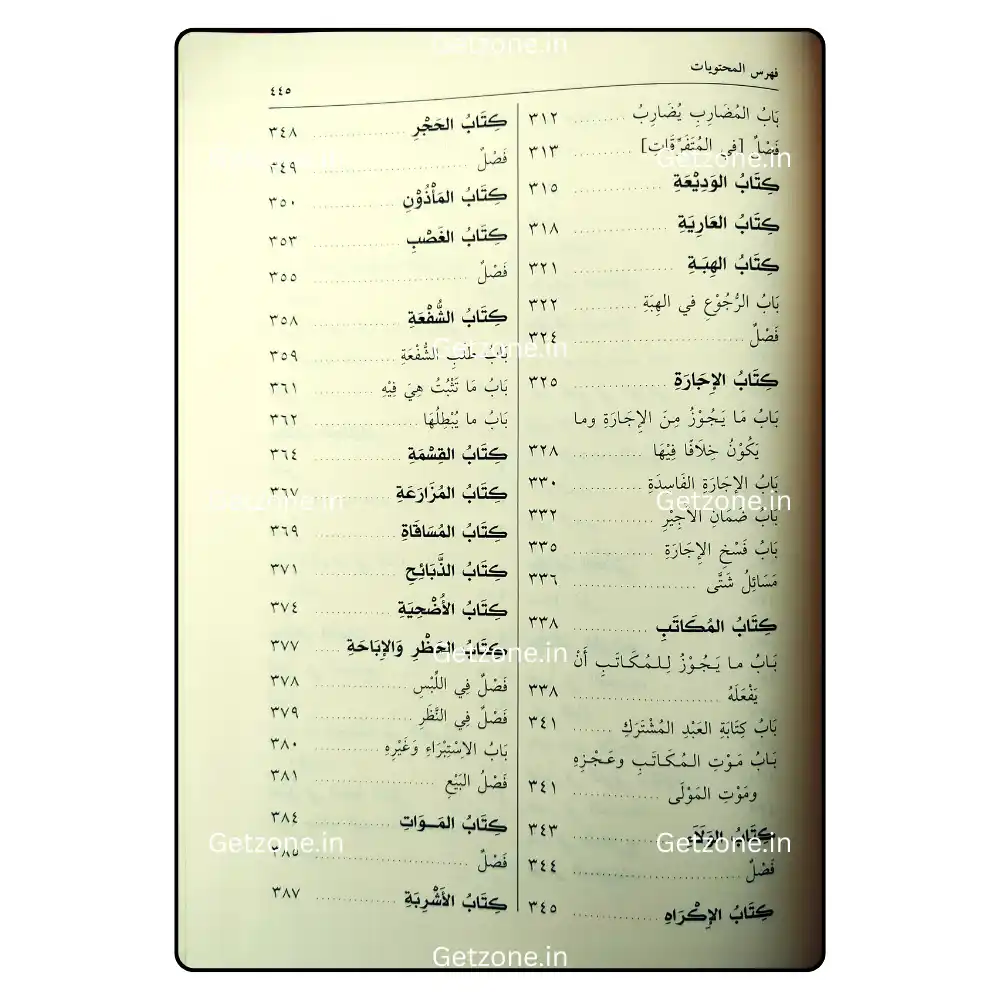 فهرس المحتويات
٤٤٥
بَابُ المُضَارِبِ يُضَارِبُ ......... ٣١٢
فَصْلٌ [في المُتَفَرِّقَاتِ] .......... ٣١٣
كِتَابُ الوَدِيْعَةِ ............... ٣١٥
كِتَابُ العَارِيَةِ ................ ٣١٨
كِتَابُ الهِبَةِ ................. ٣٢١
بَابُ الرُّجُوْعِ في الهِبَةِ ......... ٣٢٢
فَصْلٌ ......................... ٣٢٤
كِتَابُ الإِجَارَةِ ................ ٣٢٥
بَابُ مَا يَجُوْزُ مِنَ الإِجَارَةِ وما
يَكُوْنُ خِلَافًا فِيْهَا ............ ٣٢٨
بَابُ الإجَارَةِ الفَاسِدَةِ .......... ٣٣٠
بَابُ ضَمَانِ الأَجِيْرِ ............. ٣٣٢
بَابُ فَسْخِ الإِجَارَةِ ............. ٣٣٥
مَسَائِلُ شَتَّى .................. ٣٣٦
كِتَابُ المُكَاتَبِ ............... ٣٣٨
بَابُ ما يَجُوْزُ لِلمُكَاتَبِ أَنْ
يَفْعَلَهُ ........................ ٣٣٨
بَابُ كِتَابَةِ العَبْدِ المُشْتَرَكِ ...... ٣٤١
بَابُ مَوْتِ المُكَاتَبِ وعَجْزِهِ
ومَوْتِ المَوْلَى ................ ٣٤١
كِتَابُ الوَلَاءِ .................. ٣٤٣
فَصْلٌ ......................... ٣٤٤
كِتَابُ الإِكْرَاهِ ................ ٣٤٥
كِتَابُ الحَجْرِ ................. ٣٤٨
فَصْلٌ ......................... ٣٤٩
كِتَابُ المَأْذُوْنِ ................ ٣٥٠
كِتَابُ الغَصْبِ ................ ٣٥٣
فَصْلٌ ......................... ٣٥٥
كِتَابُ الشُّفْعَةِ ................ ٣٥٨
بَابُ طَلَبِ الشُّفْعَةِ ............. ٣٥٩
بَابُ مَا تَثْبُتُ هِيَ فِيْهِ .......... ٣٦١
بَابُ ما يُبْطِلُهَا ................ ٣٦٢
كِتَابُ القِسْمَةِ ................ ٣٦٤
كِتَابُ المُزَارَعَةِ ............... ٣٦٧
كِتَابُ المُسَاقَاةِ ............... ٣٦٩
كِتَابُ الذَّبَائِحِ ................ ٣٧١
كِتَابُ الأُضْحِيَةِ ............... ٣٧٤
كِتَابُ الحَظْرِ وَالإِبَاحَةِ ........ ٣٧٧
فَصْلٌ فِي اللِّبْسِ ............... ٣٧٨
فَصْلٌ فِي النَّظَرِ ............... ٣٧٩
بَابُ الاِسْتِبْرَاءِ وَغَيْرِهِ .......... ٣٨٠
فَصْلُ البَيْعِ ................... ٣٨١
كِتَابُ المَوَاتِ ................ ٣٨٤
فَصْلٌ ......................... ٣٨٥
كِتَابُ الأَشْرِبَةِ ................ ٣٨٧
Getzone.in
Getzone.in
Getzone.in
Getzone.in
Getzone.in
Getzone.in
Getzone.in
Getzone.in
Getzone.in
Getzone.in